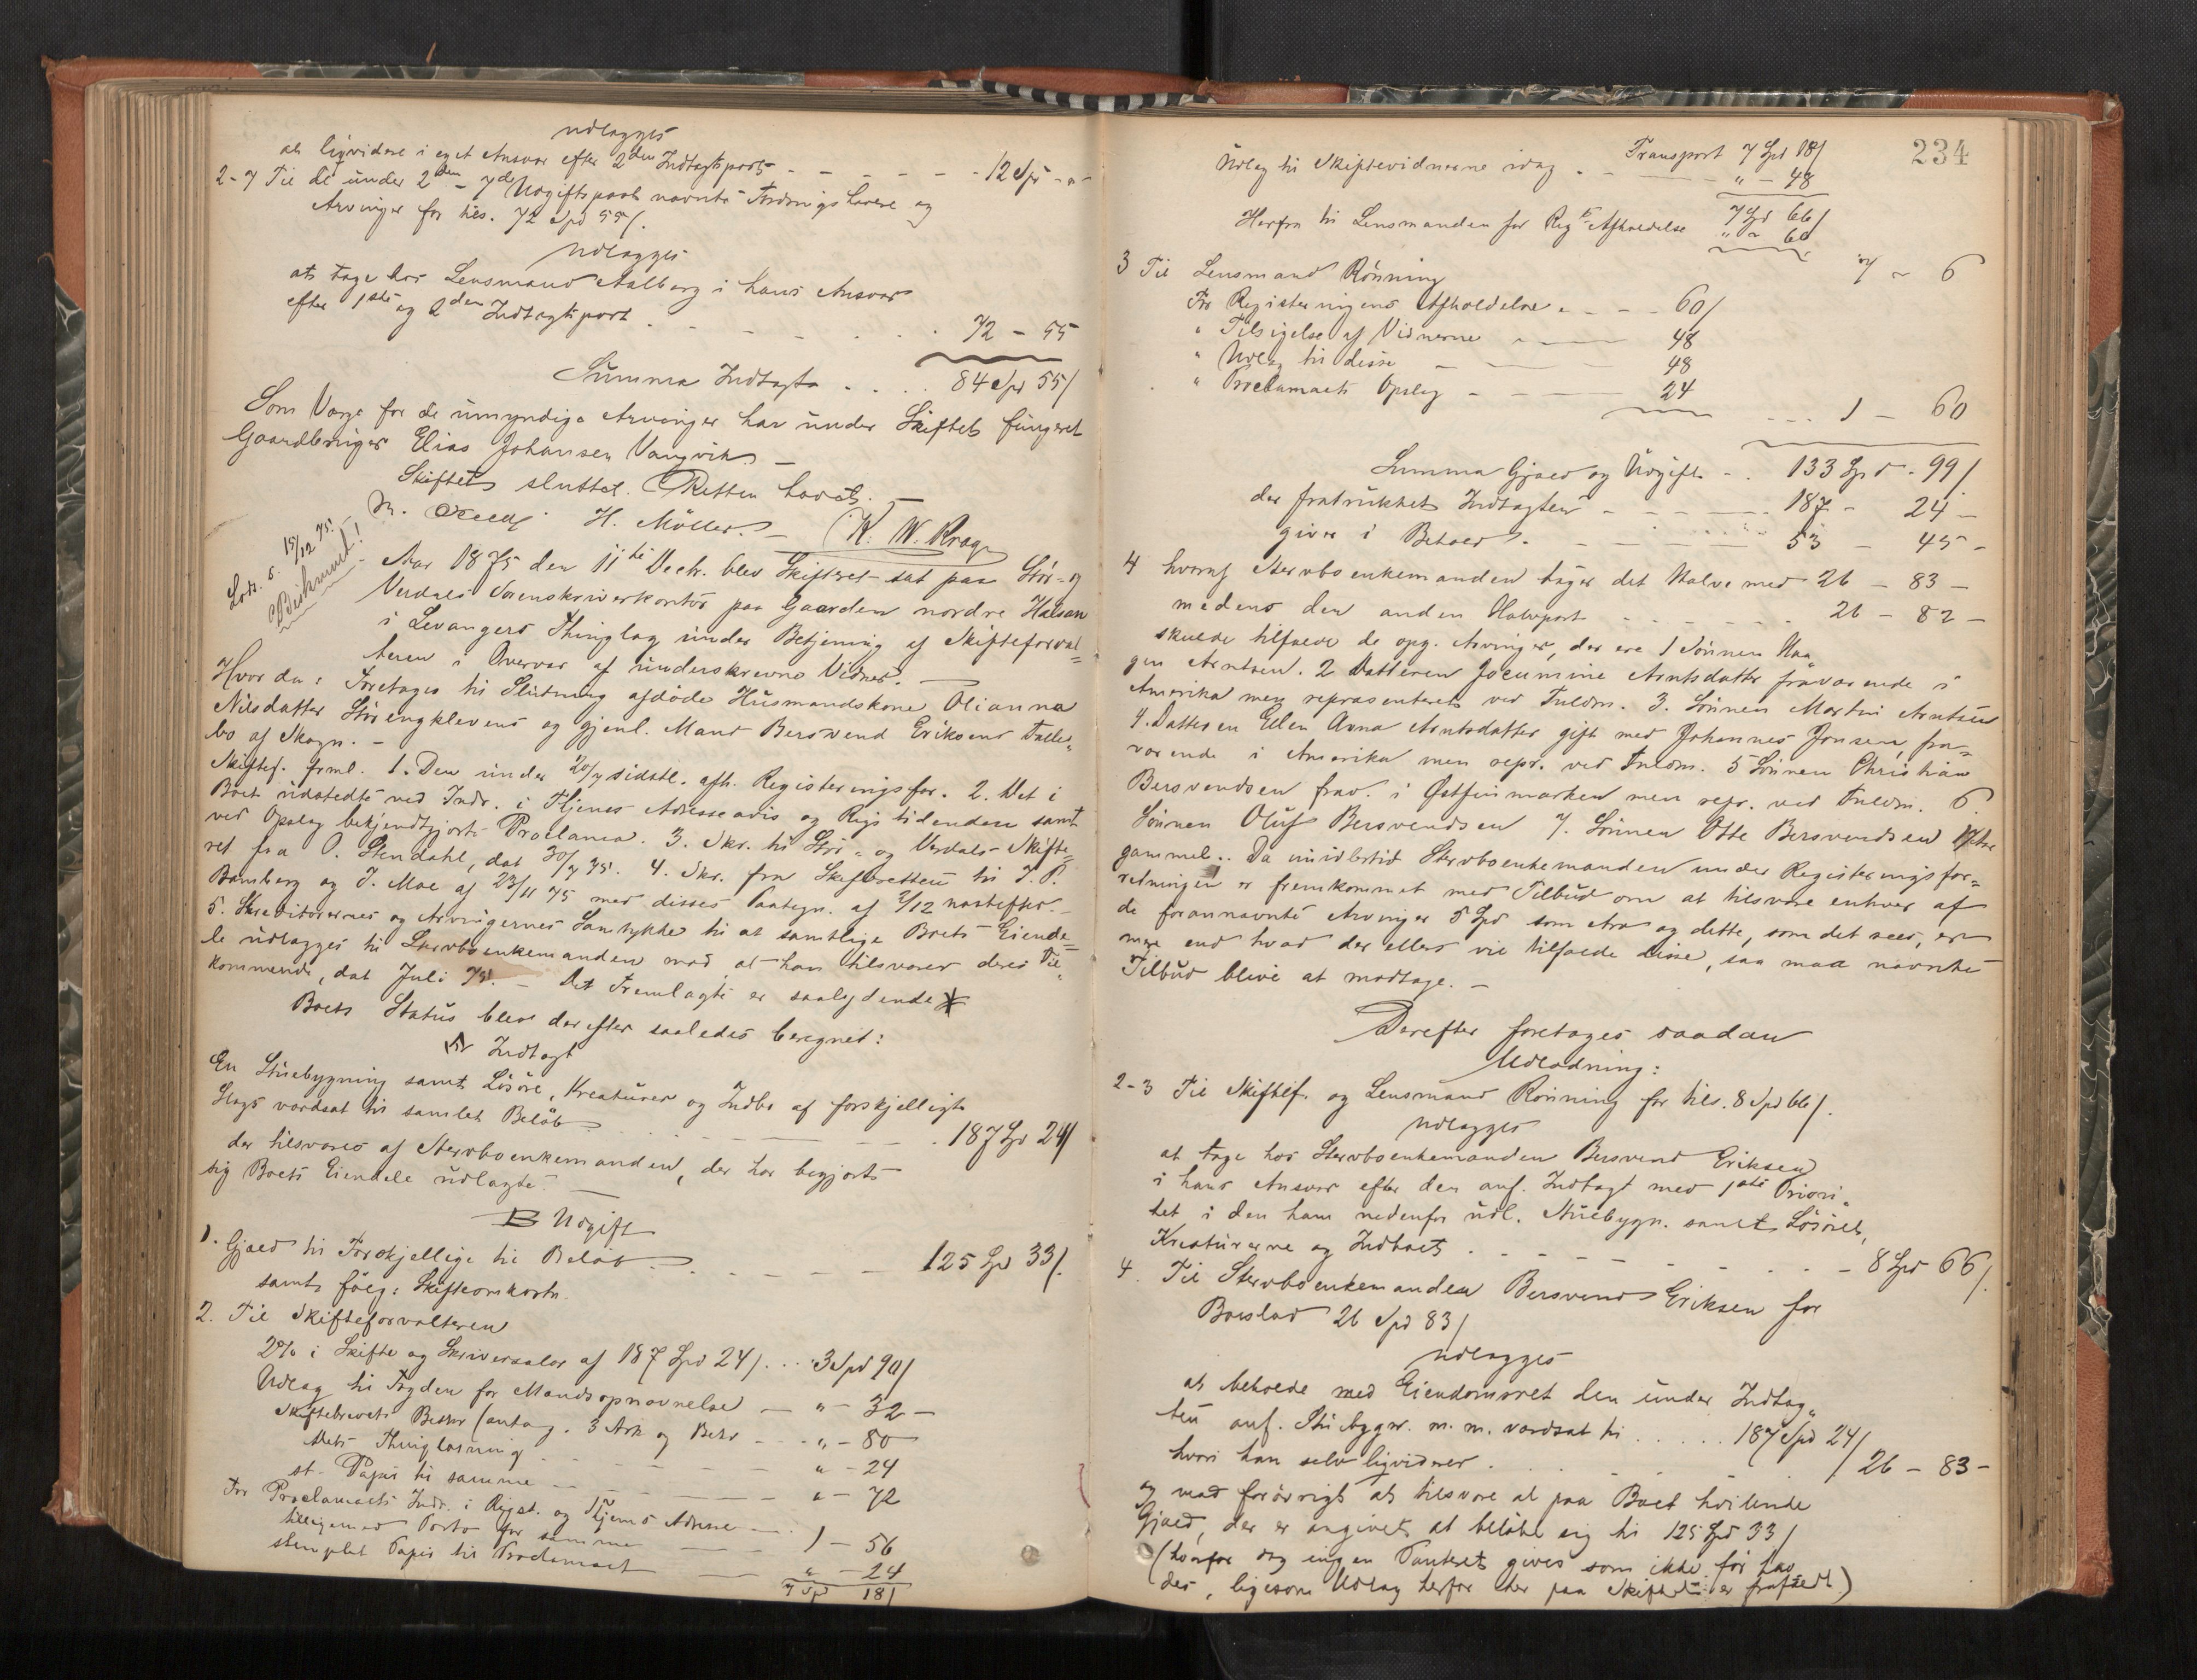 udlægges
at liqvidere i eget Ansvar efter 2den Indtagtspost - - - - - 12 Spd - " -
2-7 Til de under 2den - 7de Udgiftspost navnte Fordringshavere og
Arvinger for tils. 72 Spd 55 /.
udlægges
at tage hos Lensmand Aalberg i hans Ansvar
efter 1ste og 2den Indtagtspost . - - - . . 72 - 55
Summa Indtagt . . . . 84 Spd 55 /
Som Værge for de umyndige Arvinger har under Skiftet fungeret
Gaardbruger Elias Johansen Vangvik. -
Skiftet sluttet. Retten hævet. -
H. Möller. - K. W. Krog
15/12 75.
Aar 1875 den 11te Decbr. blev Skifteret sat paa Stör- og
Verdals Sorenskriverkontor paa Gaarden nordre Halsan
i Levangers Thinglag under Betjening af Skifteforval=
teren i Overvær af underskrevne Vidner. -
Hvor da: Foretages til Slutning afdöde Huusmandskone Olianna
Nilsdatter Störengklevens og gjenl. Mand Bersvend Eriksens Fælles
bo af Skogn. -
Skiftef. frml. 1. Den under 20/7 sidstl. afh. Registeringsfor. 2. Det i
Boet udstedte ved Indr. i Thjems Adresseavis og Rigstidenden samt
ved Opslag bekjendtgjorte Proclama. 3. Skr. til Stör- og Verdals Skifte=
ret fra O. Stendahl, dat 30/7 75. 4. Skr. fra Skifteretten til J. P.
Bamberg og J. Moe af 23/11 75 med disses Paategn. af 2/12 næstefter. -
5. Kreditorernes og Arvingernes Samtykke til at samtlige Boets Eiende=
le udlægges til Stervboenkemanden mod at han tilsvarer deres Til=
kommende, dat Juli 75. - Det Fremlagte er saalydende
Boets Status blev derefter saaledes beregnet:
A Indtægt
En Stuebygning samt Lösöre, Kreaturer og Indbo af forskjelligt
Slags værdsat til samlet Belöb . - - - - - . 187 Spd 24 /
der tilsvares af Stervboenkemanden, der har begjært
sig Boets Eiendele udlagte. -
B Udgift
1. Gjæld til Forskjellige til Belöb . . - - - - 125 Spd 33 /.
samt fölg: Skifteomkostn.
2. Til Skifteforvalteren
2% i Skifte og Skriversalær af 187 Spd 24 /. . . . 3 Spd 90 /
Udlæg til Fogden for Mandsopnævnelse - " - 32 -
Skiftebrevets Beskr (antag. 3 Ark og Bekr - - . " - 80
Dets Thinglæsning - - - - " - 24
st. Papir til samme - - - - " - 72
For Proclamaets Indr. i Rigst. og Thjems Adresse - .
tilligemed Porto for samme - - 1 - 56
stemplet Papir til Proclamaet - " - 24
7 Spd 18 /
234
Transport 7 Spd 18 /
Udlæg til Skiftevidnerne idag . - - " - 48
7 Spd 66 /
Herfra til Lensmanden for Reg. Afholdelse " - 60
7 - 6
3 Til Lensmand Rönning
For Registeringens Afholdelse . - - - 60 /
" Tilsigelse af Vidnerne - - 48
" Udlæg til disse - - 48
" Proclamaets Opslag - - - 24
- - 1 - 60
Summa Gjæld og Udgift - . 133 Spd . 99 /
der fratrukket Indtægten - - - - 187 - 24 -
giver i Behold . - - - 53 - 45 -
4 hvoraf Stervboenkemanden tager det Halve med 26 - 83 -
medens den anden Halvpart - - - - 26 - 82 -
skulde tilfalde de opg. Arvinger, der ere 1 Sönnen Haa
gen Arntsen. 2 Datteren Jocumine Arntsdatter fraværende i
Amerika men repræsenteret ved Fuldm. 3. Sönnen Martin Arntsen
4. Datteren Ellen Anna Arntsdatter gift med Johannes Jonsen, fra=
værende i Amerika men repr. ved Fuldm. 5 Sönnen Christian
Bersvendsen frav. i Østfinmarken men repr. ved Fuldm. 6
Sönnen Oluf Bersvendsen 7. Sönnen Otte Bersvendsen
gammel. . Da imidlertid Stervboenkemanden under Registeringsfor=
retningen er fremkommet med Tilbud om at tilsvare enhver af
de forannævnte Arvinger 5 Spd som Arv og dette, som det sees, er
mere end hvad der ellers vil tilfalde disse, saa maa nævnte
Tilbud blive at modtage. -
Derefter foretages saadan
Udlodning:
2-3 Til Skiftef. og Lensmand Rönning for tils. 8 Spd 66 /.
udlægges
at tage hos Stervboenkemanden Bersvend Eriksen
i hans Ansvar efter den anf. Indtægt med 1ste Priori=
tet i den ham nedenfor udl. Stuebygn. samt Lösöret,
Kreaturerne og Indboet . - - - - - . . - 8 Spd 66 /.
4. Til Stervboenkemanden Bersvend Eriksen for
Boeslod 26 Spd 83 /
udlægges
at beholde med Eiendomsret den under Indtæg=
ten anf. Stuebygn. m. m. værdsat til . . . . . 187 Spd 24 /
hvori han selv liqviderer . - - . . / 26 - 83 -
og mod forövrigt at tilsvare al paa Boet hvilende
Gjæld, der er angivet at belöbe sig til 125 Spd 33 /
(hvorfor dog ingen Panteret gives som ikke för hav
des, ligesom Udlæg herfor her paa Skiftet er frafaldt.)